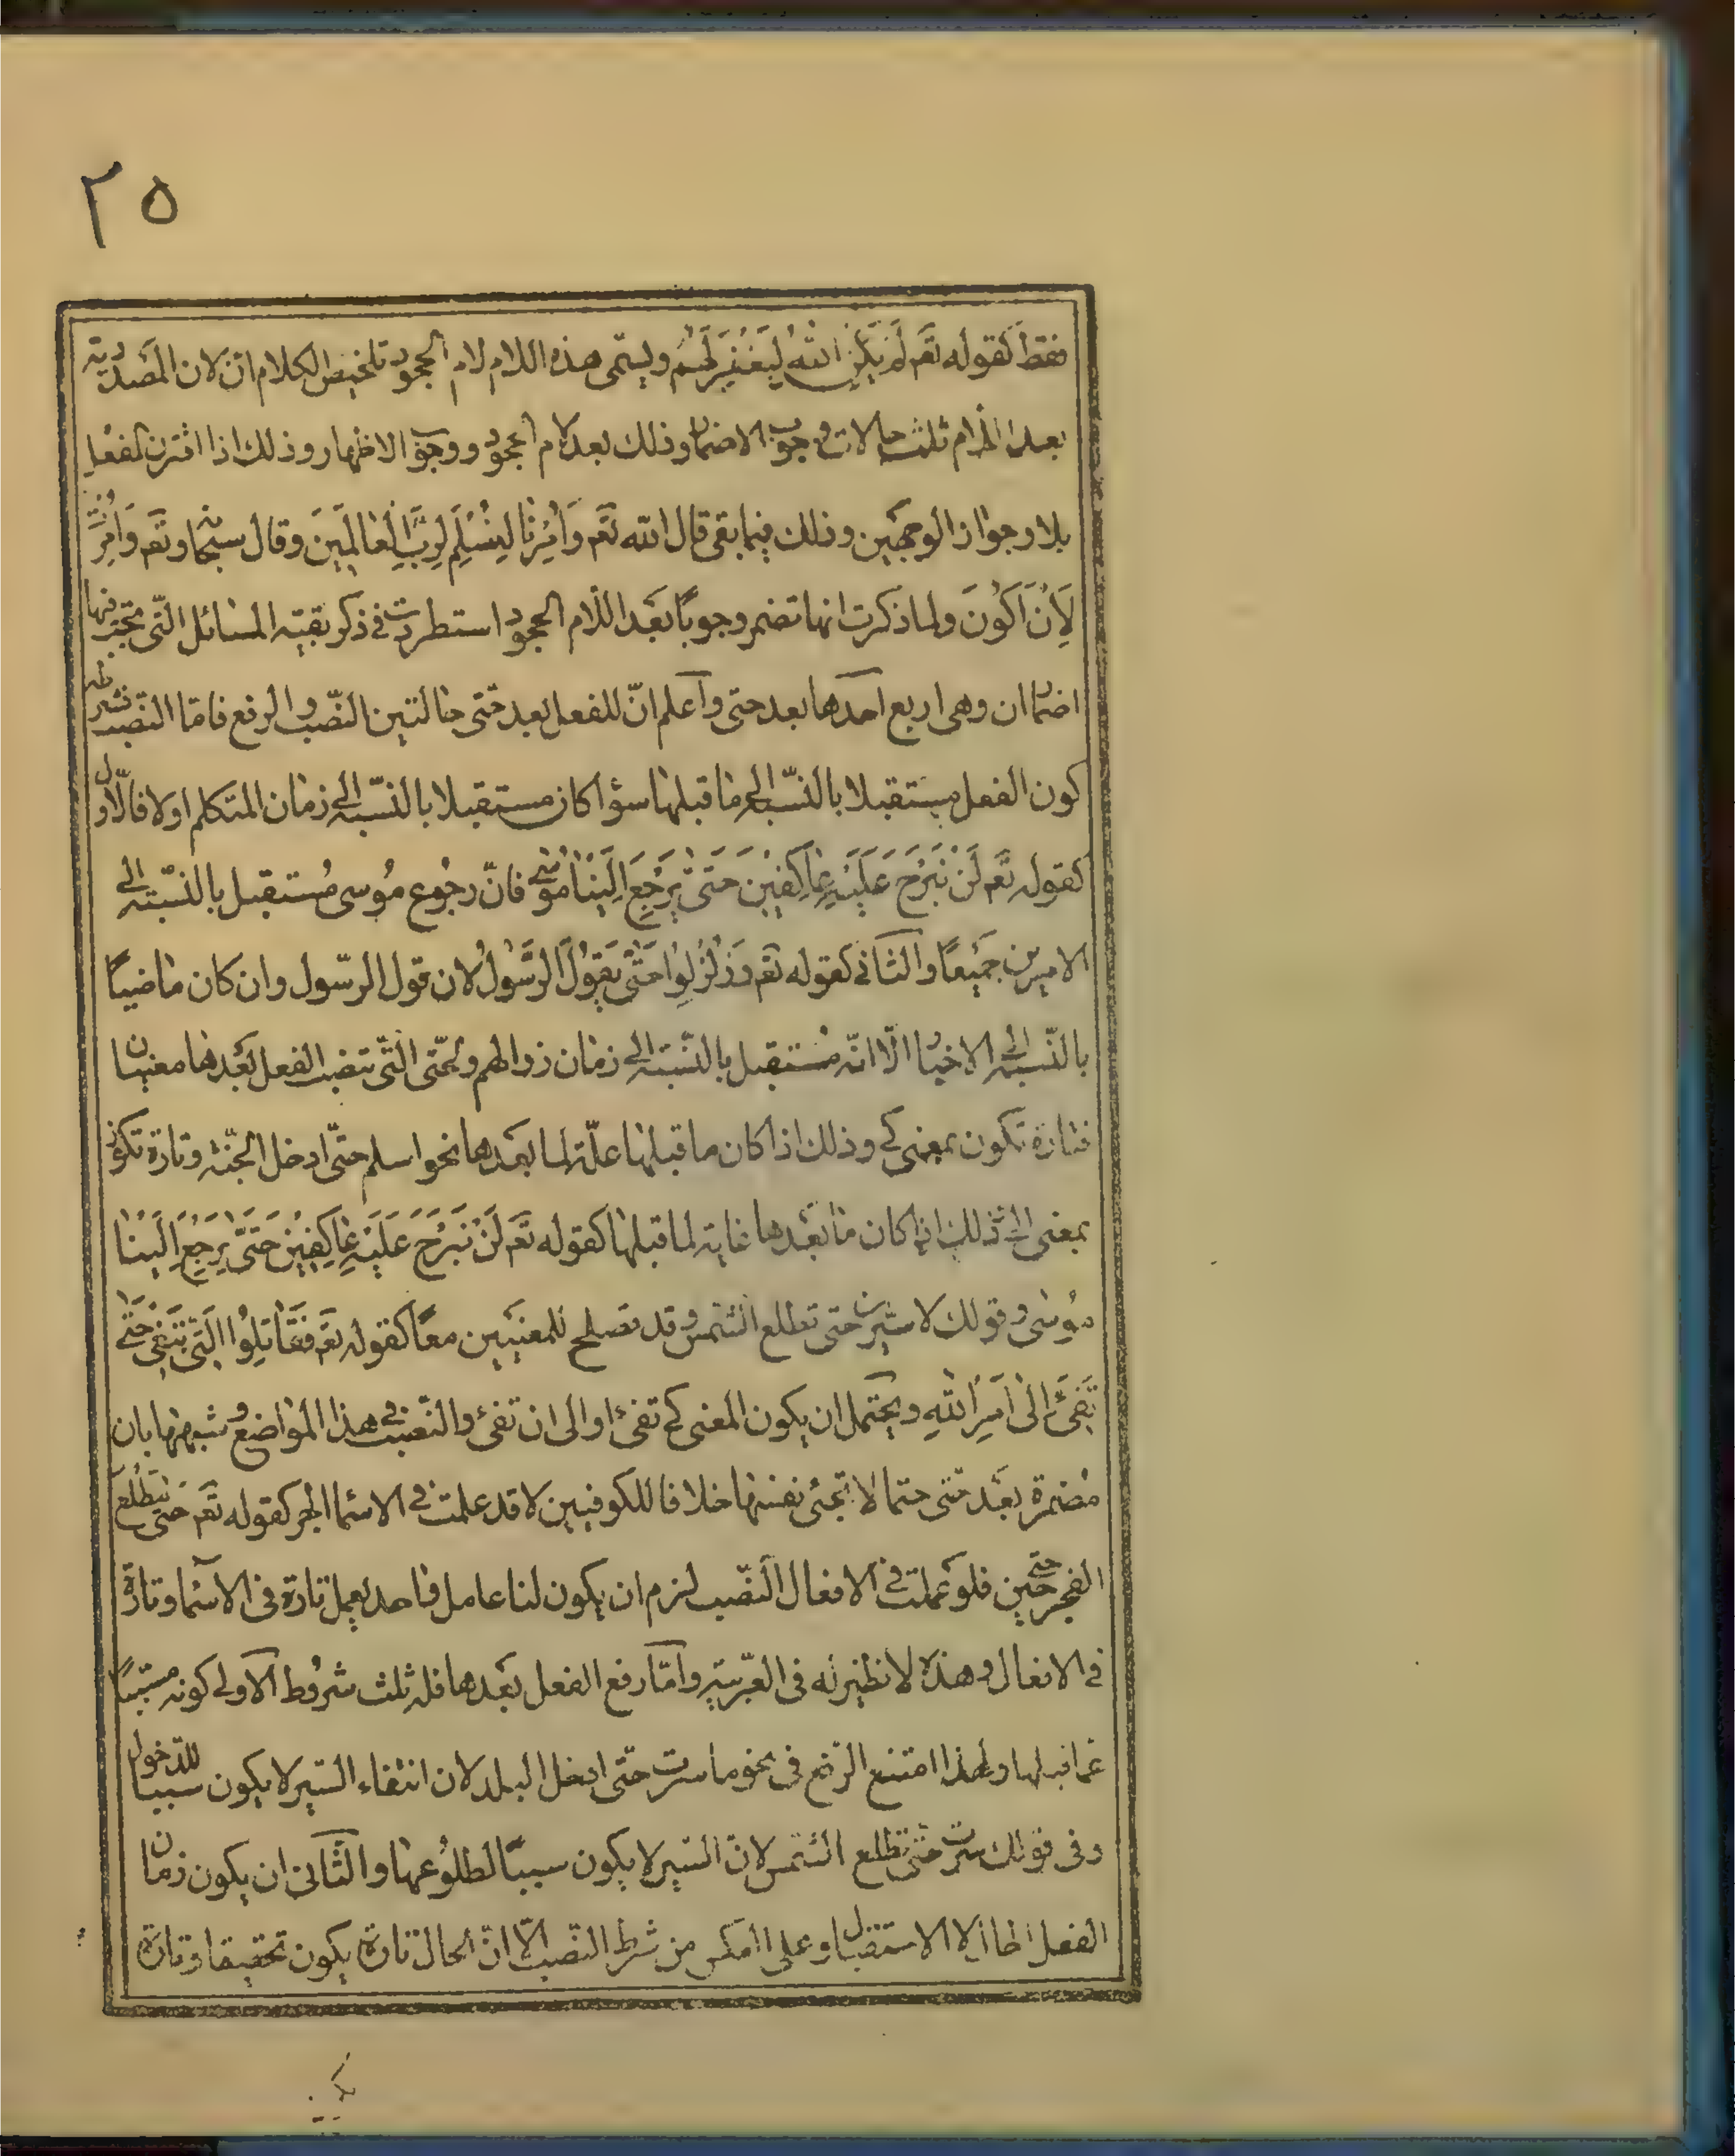 ٢٥
فقط كقوله تع لَمْ يَكُنِ اللّٰهُ لِيَغْفِرَ لَهُمْ ويسمّى هذه اللام لام الجحود تلخيص الكلام انّ لان المصدريّة
بعد اللام ثلث حالات وجوب الاضمار وذلك بعد لام الجحود ووجوب الاظهار وذلك اذا اقترن الفعل
بلا وجواز الوجهين وذلك فيما بقى قال اللّه تع وَاُمِرْنا لِنُسْلِمَ لِرَبِّ الْعالَمِينَ وقال سبحانه وتع وَاُمِرْتُ
لِاَنْ اَكُونَ ولما ذكرت انها تضمر وجوبًا بعد اللّام الجحود استطردت في ذكر بقيّة المسائل التّى يجب فيها
اضمار ان وهى اربع احدها بعد حتى واعلم انّ للفعل بعد حتّى حالتين النّصب والرفع فامّا النّصب فشرطه
كون الفعل مستقبلا بالنّسبة الى ما قبلها سواء كان مستقبلا بالنّسبة الى زمان المتكلم اولا فالاوّل
كقوله تع لَنْ نَبْرَحَ عَلَيْهِ عاكِفِينَ حَتّىٰ يَرْجِعَ اِلَيْنا مُوسىٰ فانّ رجُوع مُوسى مُستقبل بالنّسبة الى
الامرين جميعًا والثّانى كقوله تع وَزُلْزِلُوا حَتّىٰ يَقُولَ الرَّسُولُ لان قول الرّسول وان كان ماضيًا
بالنّسبة الى الاخبار الّا انّه مستقبل بالنّسبة الى زمان زلزالهم ولحتّى التّى تنصب الفعل بعدها معنيان
فتارة تكون بمعنى كى وذلك اذا كان ما قبلها علّة لما بعدها نحو اسلم حتّى ادخل الجنّة وتارة تكون
بمعنى الى وذلك اذا كان ما بعدها غاية لما قبلها كقوله تع لَنْ نَبْرَحَ عَلَيْهِ عاكِفِينَ حَتّىٰ يَرْجِعَ اِلَيْنا
مُوسٰى وقولك لاسيرن حتى تطلع الشّمس وقد تصلح للمعنيين معًا كقوله تع فَقاتِلُوا الَّتِى تَبْغِى حَتّىٰ
تَفِىءَ اِلىٰ اَمْرِ اللّٰهِ ويحتمل ان يكون المعنى كى تفئ او الى ان تفئ والنّصب فى هذا المواضع وشبهها بان
مضمرة بعد حتى حتما لا بحتى نفسها خلافا للكوفيين لا قد عملت فى الاسماء الجر كقوله تع حَتّىٰ مَطْلَعِ
الفجر حتّى حين فلو عملت فى الافعال النّصب لزم ان يكون لنا عامل واحد يعمل تارة فى الاسماء وتارة
فى الافعال وهذا لا نظير له فى العربيّة وامّا رفع الفعل بعدها فله ثلث شروط الاولى كونه مسبّبًا
عما قبلها ولهذا امتنع الرّفع فى نحو ما سرت حتّى ادخل البلد لان انتفاء السّير لا يكون سببا للدّخول
وفى قولك سرت حتّى تطلع الشّمس لانّ السّير لا يكون سببًا لطلوعها والثّانى ان يكون زمان
الفعل الحال لا الاستقبال وعلى العكس من شرط النّصب الّا انّ الحال تارة يكون تحقيقا وتارة